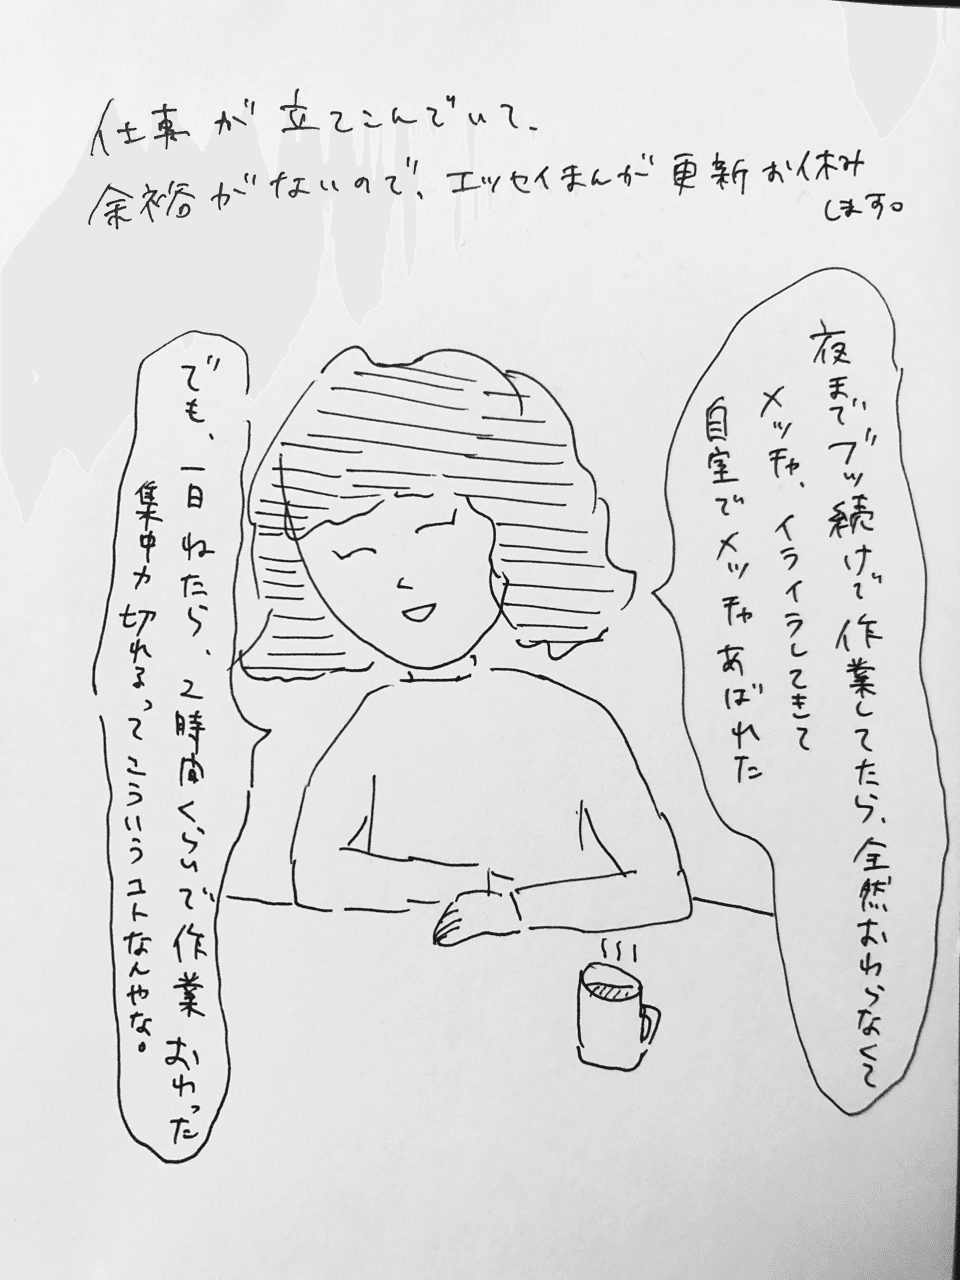 仕事が立てこんでいて、
余裕がないので、エッセイまんが更新お休み
します。
夜までブッ続けで作業してたら、全然おわらなくて
メッチャ、イライラしてきて
自室でメッチャあばれた
でも、一日ねたら、2時間くらいで作業おわった
集中力切れるってこういうコトなんやな。